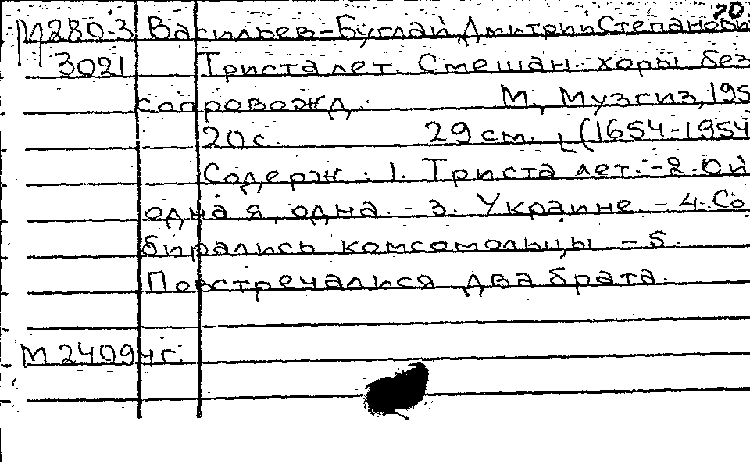 20.
М280-3 Васильев-Буглай, Дмитрий Степанови
3021 Триста лет. Смешан. хоры без
сопровожд. М., Музгиз, 195
20 с. 29 см. (1654-1954
Содерж.: 1. Триста лет. - 2. Ой
одна я, одна. - 3. Украине. - 4. Со
бирались комсомольцы - 5.
Повстречалися два брата.
М 24094г.